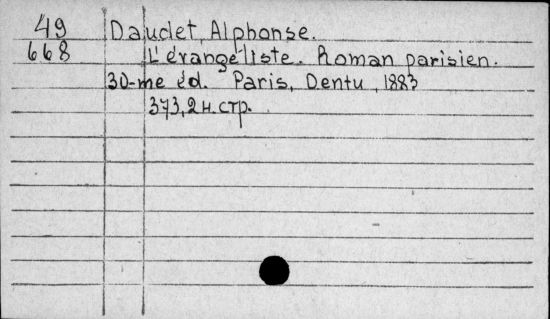 49 Daudet, Alphonse.
668 L'évangéliste. Roman parisien.
30-me éd. Paris, Dentu, 1883
373, 2 н. стр.